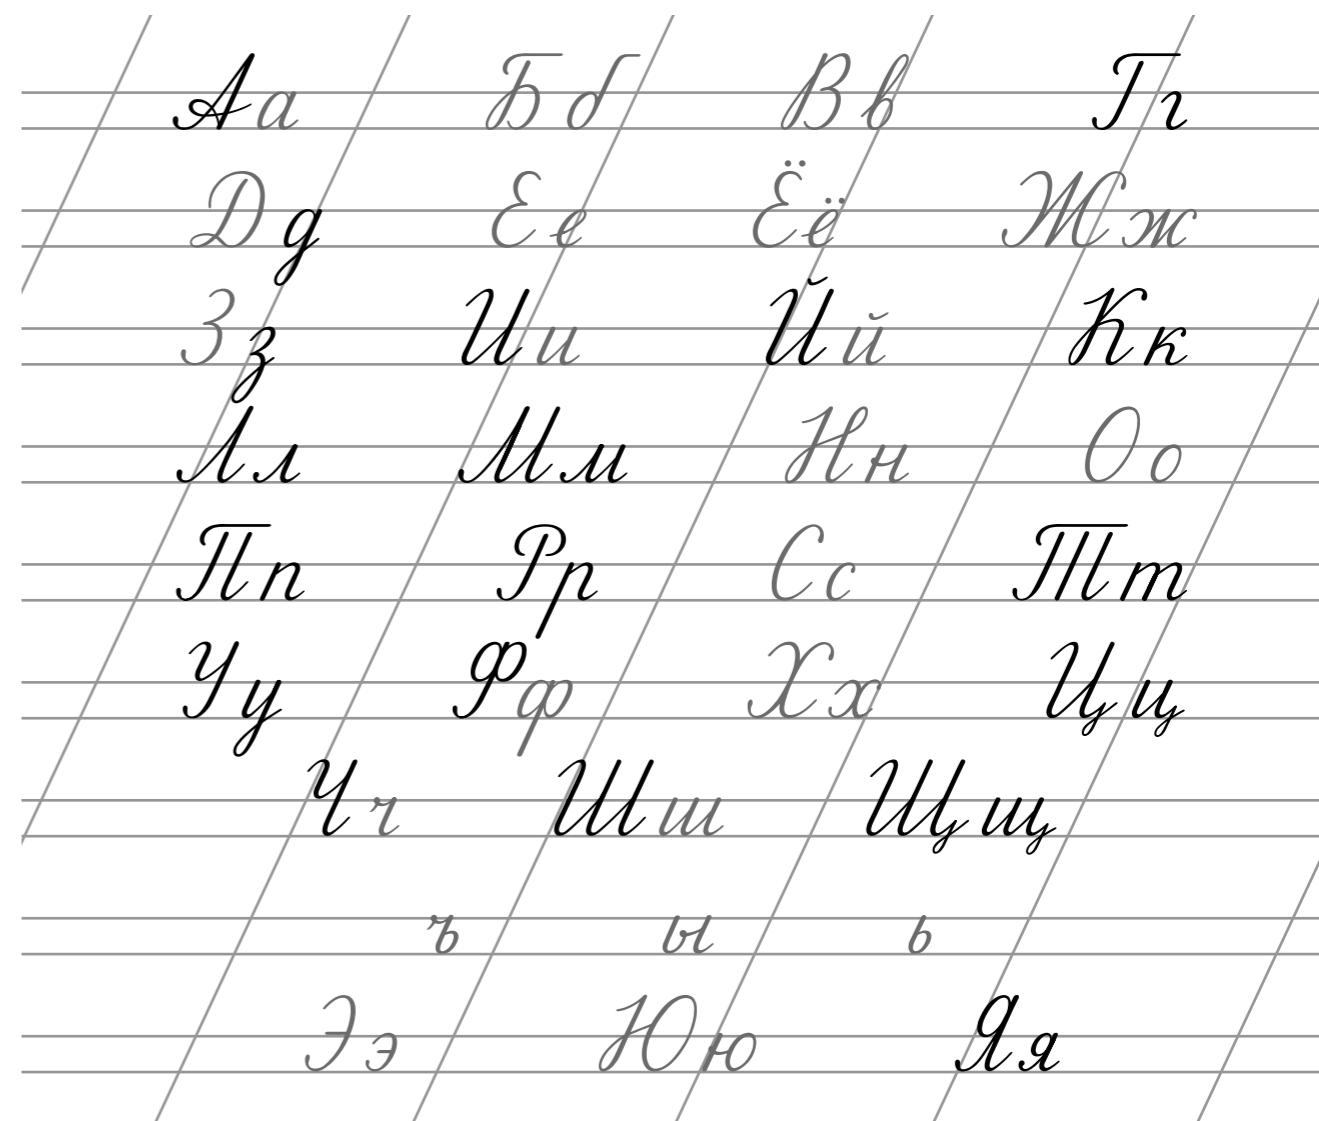 Аа Бб Вв Гг
Дд Ее Ёё Жж
Зз Ии Йй Кк
Лл Мм Нн Оо
Пп Рр Сс Тт
Уу Фф Хх Цц
Чч Шш Щщ
ъ ы ь
Ээ Юю Яя